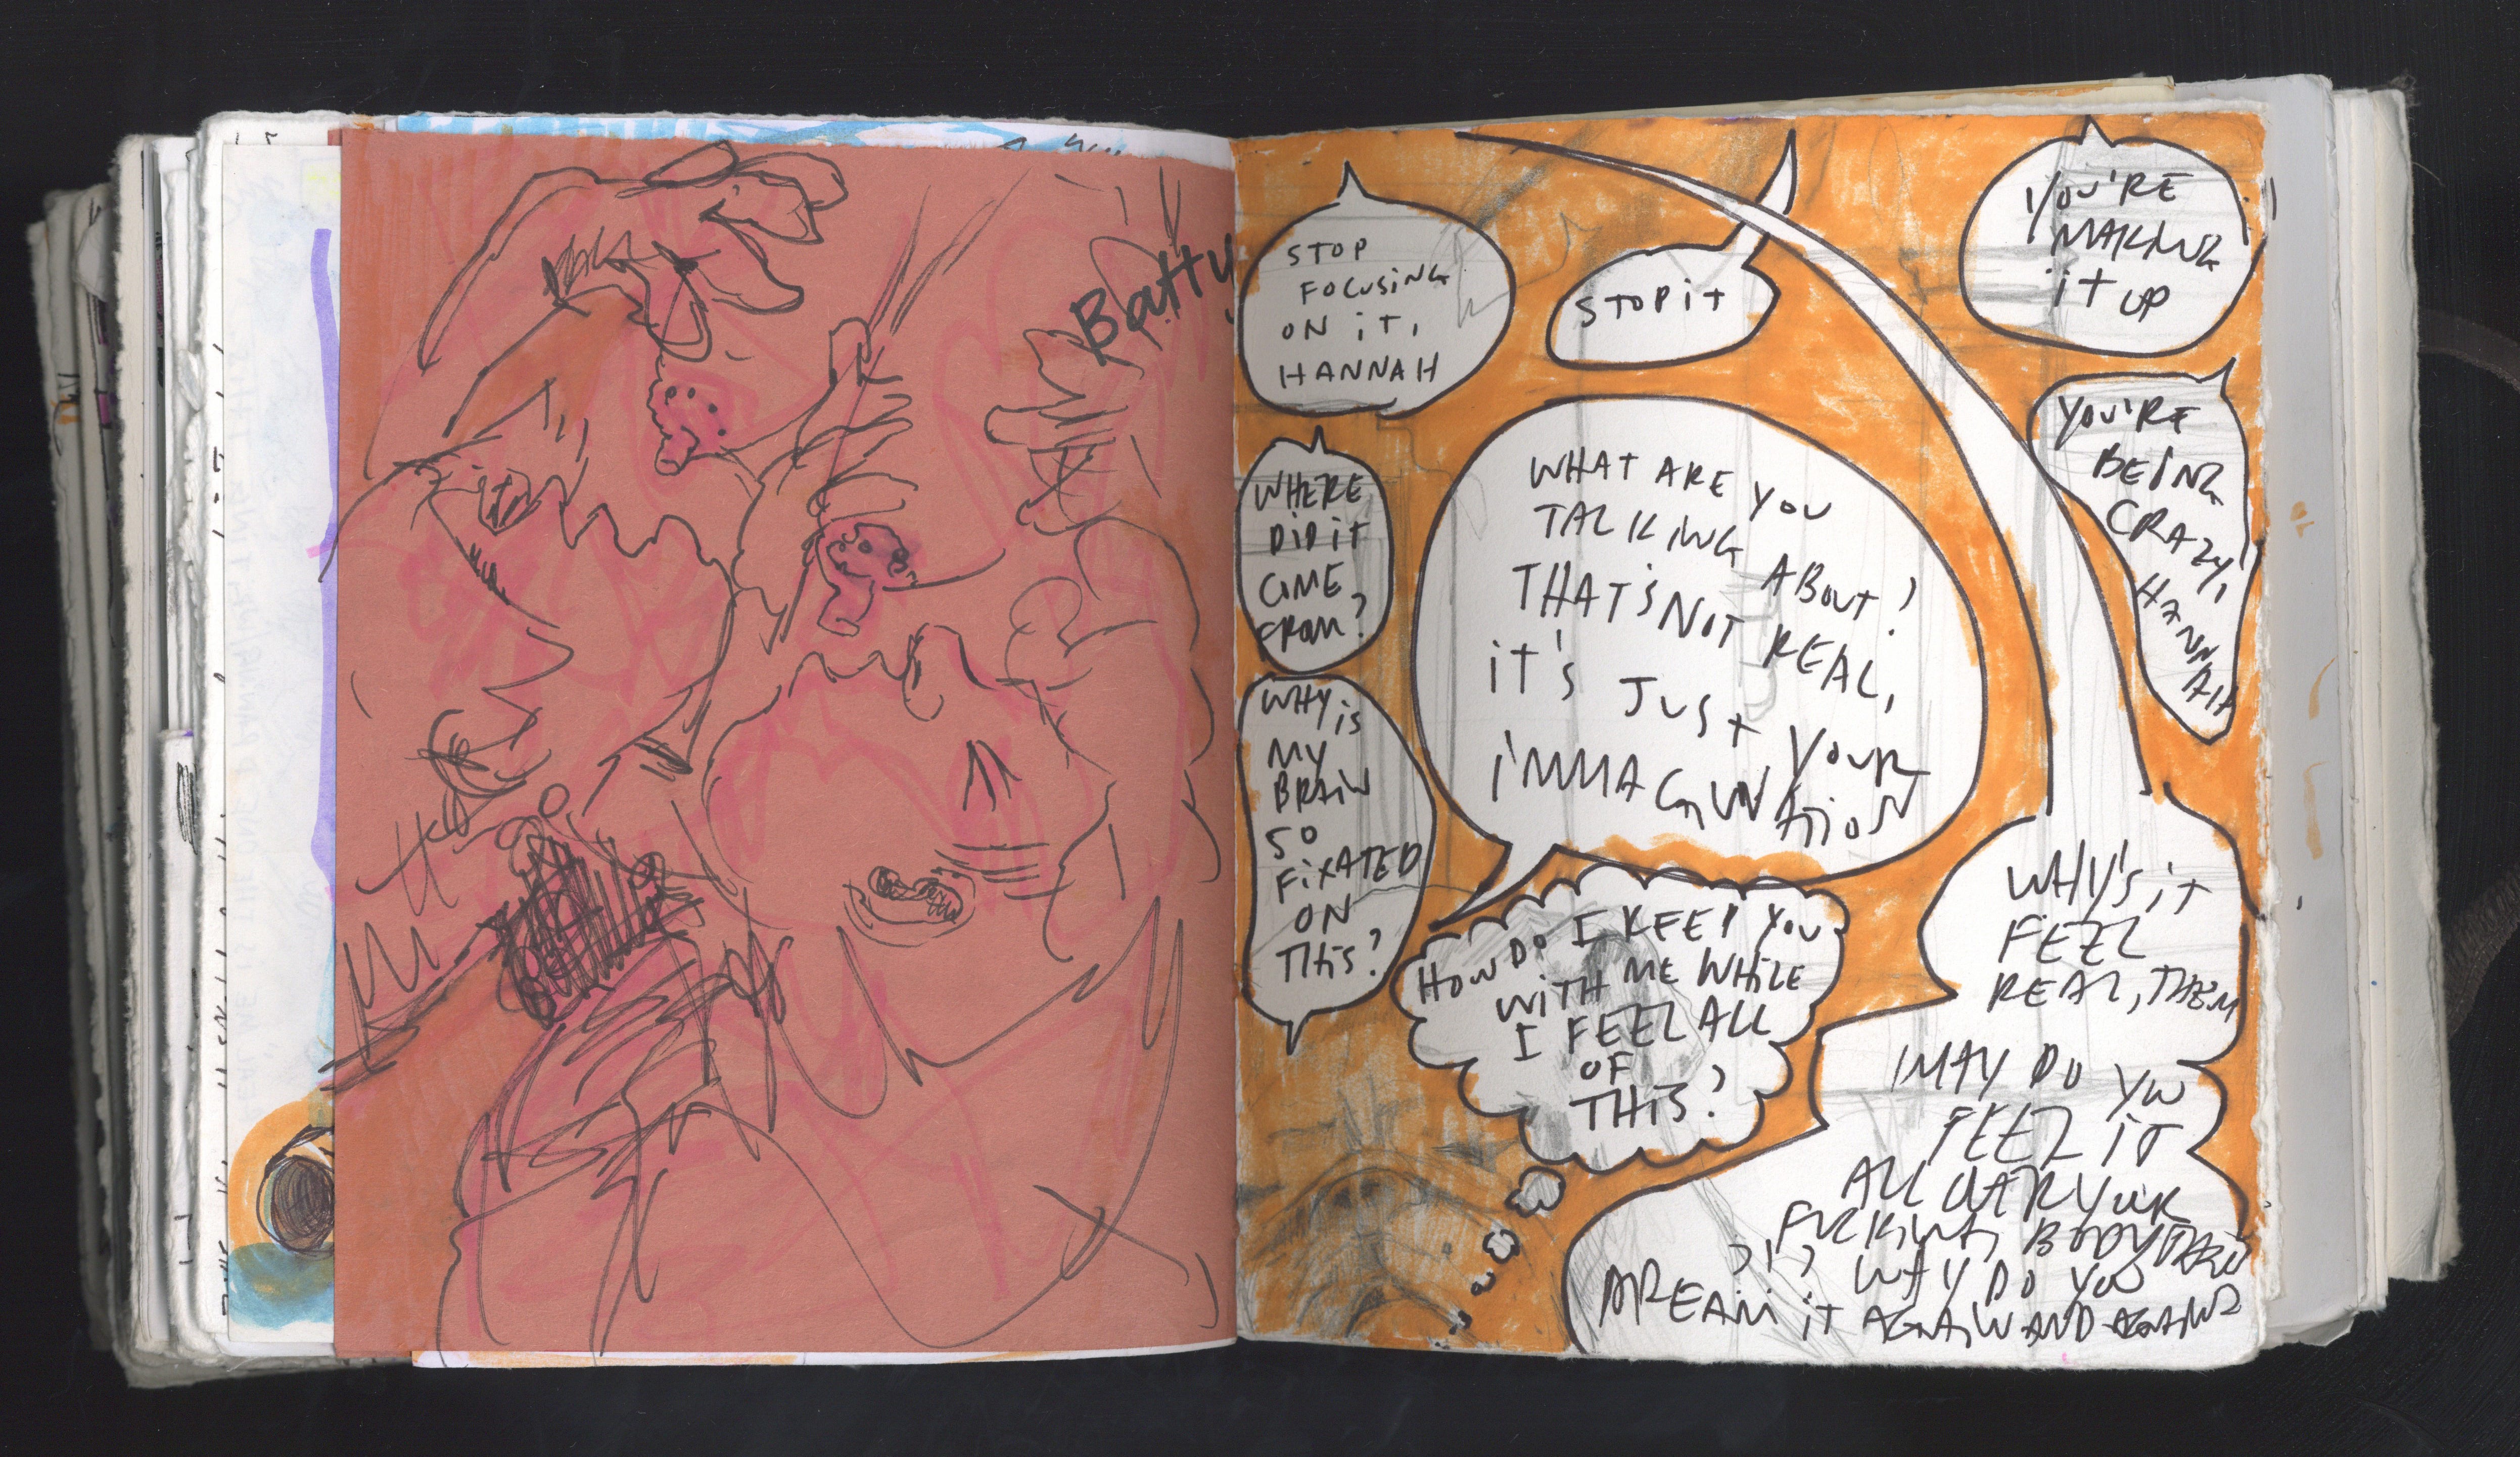 Batty
STOP
FOCUSING
ON iT,
HANNAH
STOP iT
YOU'RE
MAKING
iT UP
WHERE
DiD iT
COME
FROM?
YOU'RE
BEING
CRAZY,
HANNAH
WHAT ARE YOU
TALKING ABOUT?
THAT'S NOT REAL,
iT'S JUST YOUR
iMMAGINATiON
WHY iS
MY
BRAiN
SO
FiXATED
ON
THiS?
HOW DO I KEEP YOU
WiTH ME WHiLE
I FEEL ALL
OF
THiS?
WHY'S iT
FEEL
REAL, THEN
WHY DO YOU
FEEL IT
ALL OVER YOUR
FUCKiNG BODY THEN
?!? WHY DO YOU
DREAM iT AGAiN AND AGAiN?